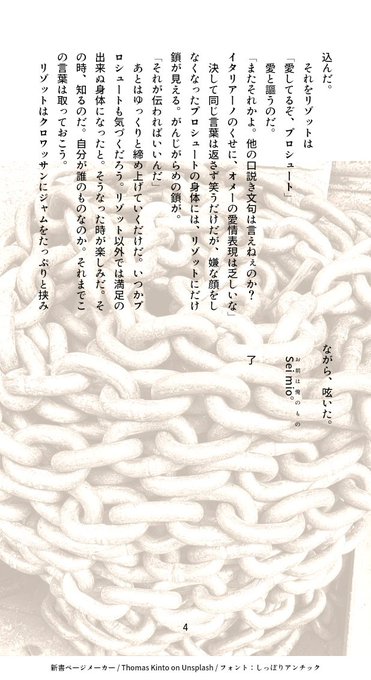 込んだ。
　それをリゾットは
「愛してるぞ、プロシュート」
　愛と謳うのだ。
「またそれかよ。他の口説き文句は言えねぇのか？
イタリアーノのくせに、オメーの愛情表現は乏しいな」
　決して同じ言葉は返さず笑うだけだが、嫌な顔をし
なくなったプロシュートの身体には、リゾットにだけ
鎖が見える。がんじがらめの鎖が。
「それが伝わればいいんだ」
　あとはゆっくりと締め上げていくだけだ。いつかプ
ロシュートも気づくだろう。リゾット以外では満足の
出来ぬ身体になったと。そうなった時が楽しみだ。そ
の時、知るのだ。自分が誰のものなのか。それまでこ
の言葉は取っておこう。
　リゾットはクロワッサンにジャムをたっぷりと挟み
ながら、呟いた。
お前は俺のもの
Sei mio。
了
4
新書ページメーカー / Thomas Kinto on Unsplash / フォント：しっぽりアンチック